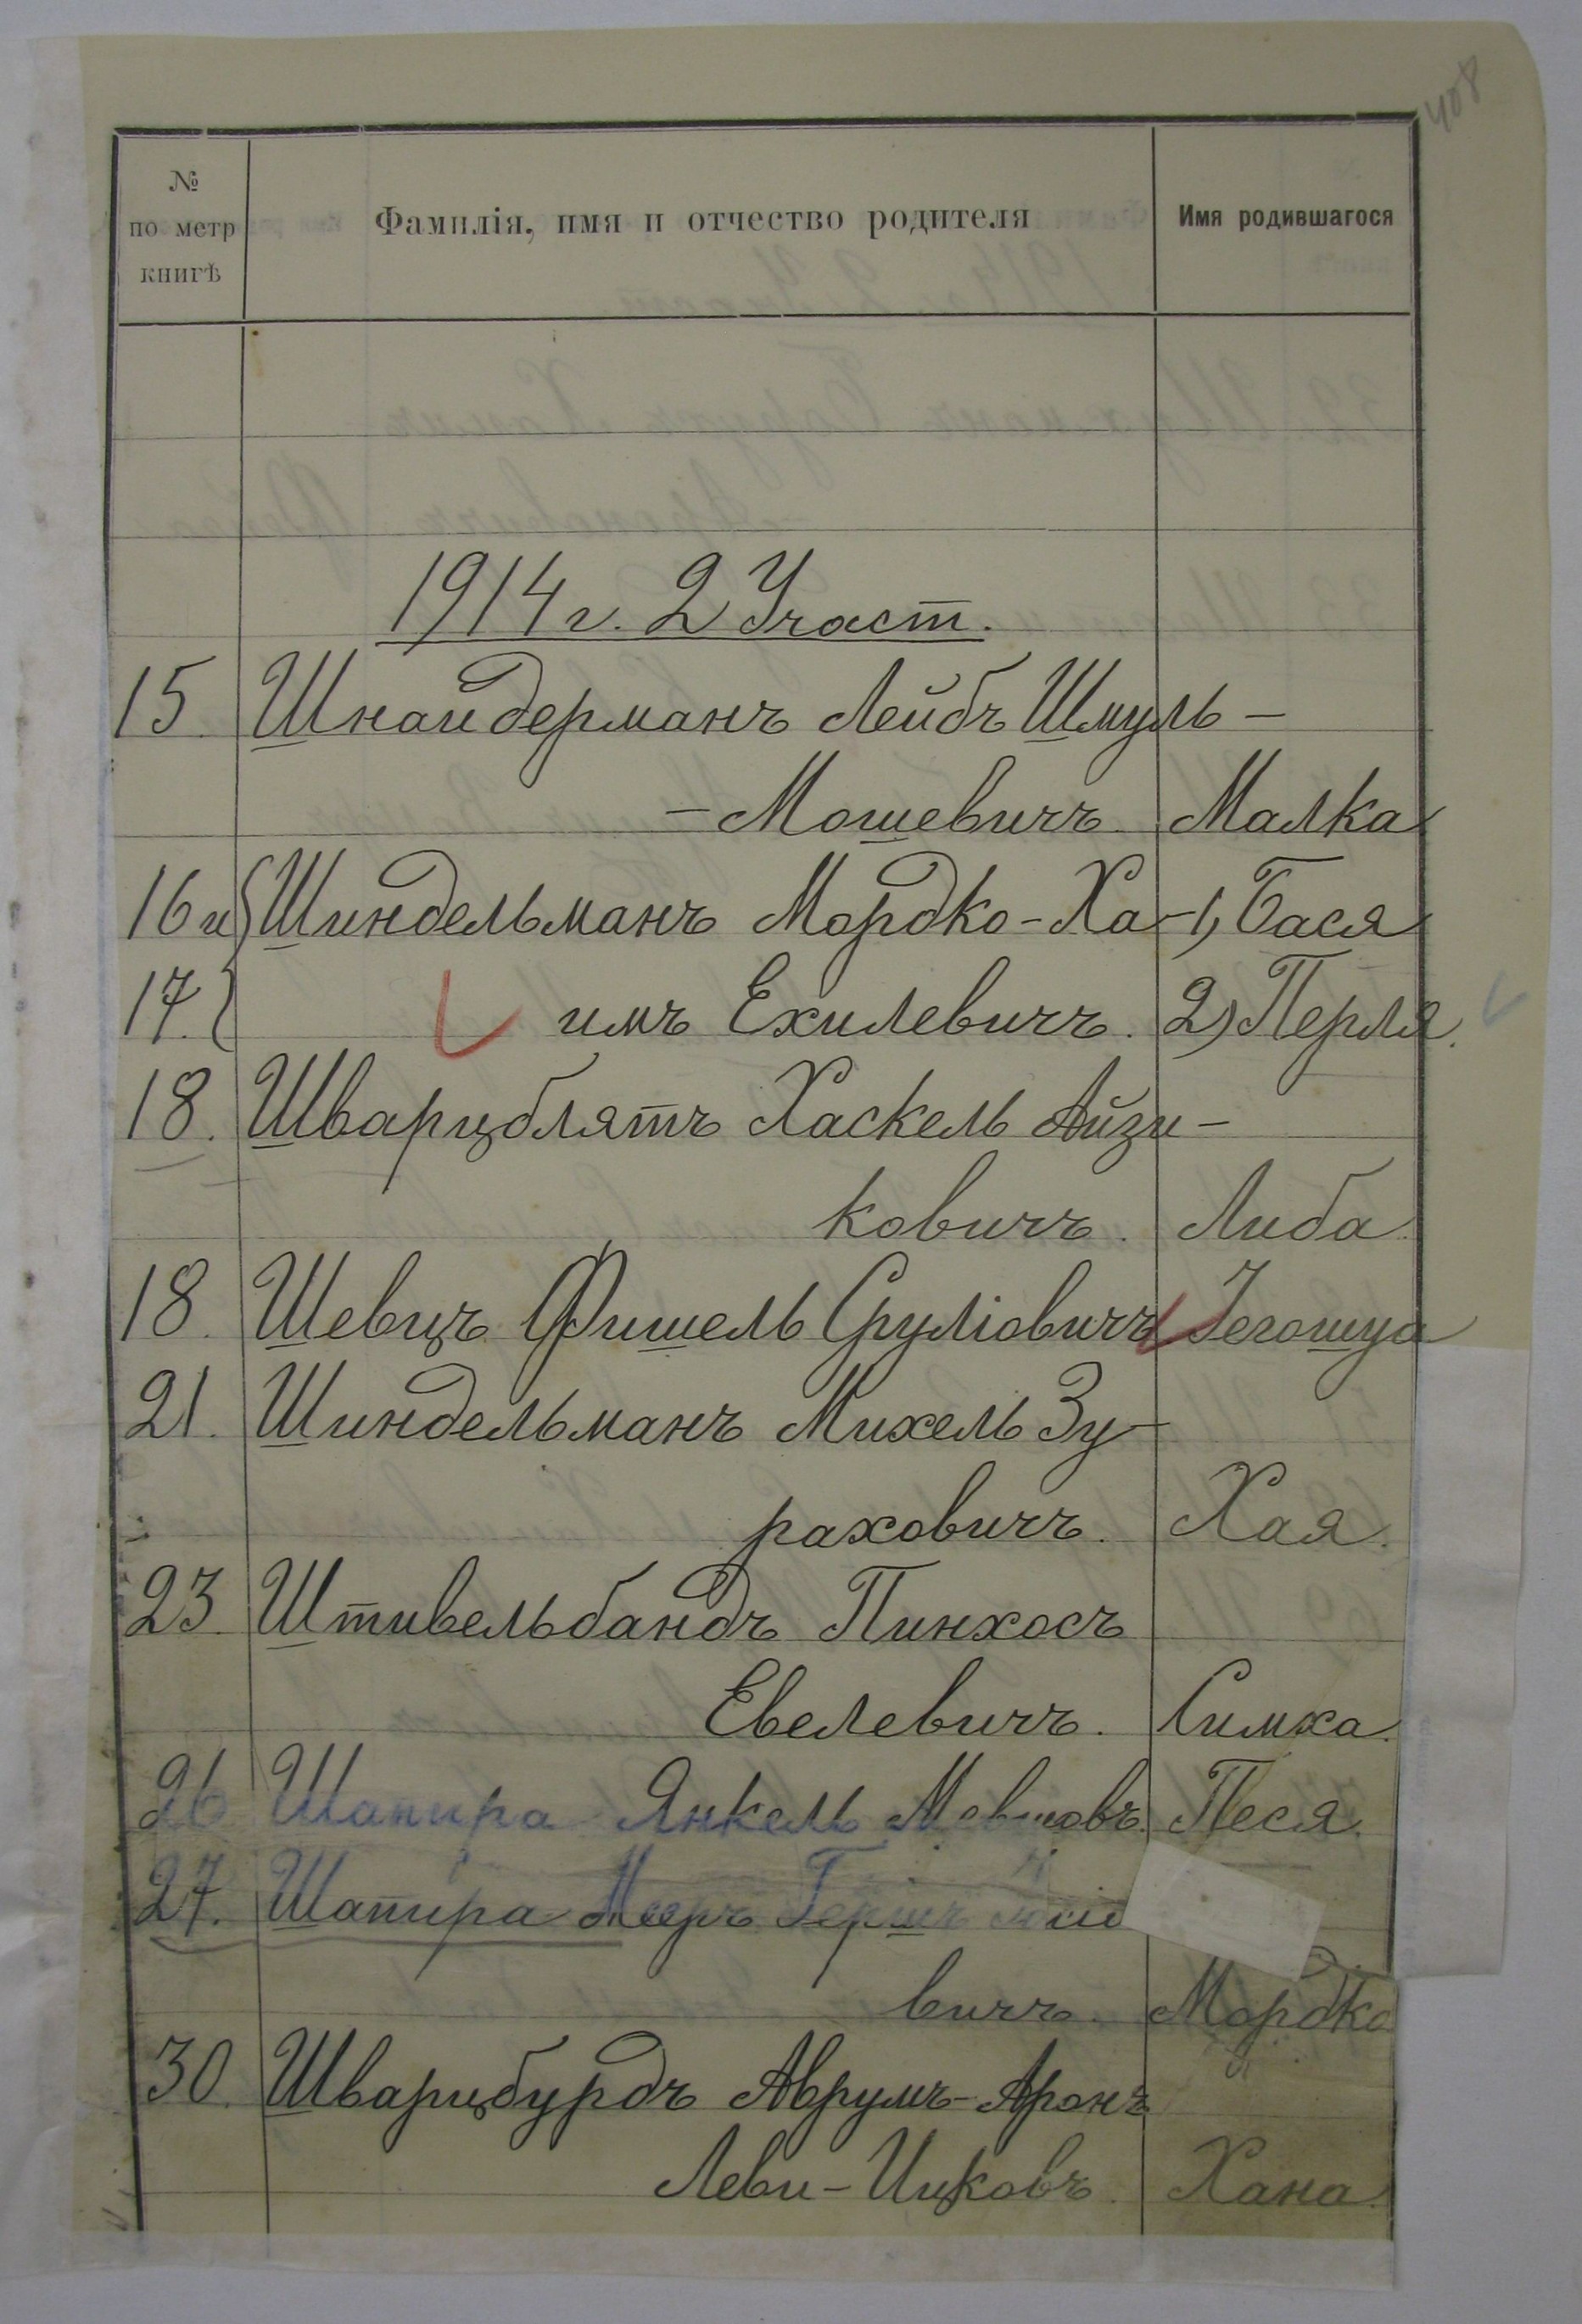 408
№
по метр
книгѣ
Фамилія, имя и отчество родителя
Имя родившагося
1914 г. 2 Участ.
15. Шнайдерманъ Лейбъ Шмуль-
-Мошевичъ. Малка
16 и Шиндельманъ Мордко-Ха- 1) Бася
17. имъ Ехилевичъ. 2) Перля.
18. Шварцблятъ Хаскель Айзи-
ковичъ. Либа.
18. Шевцъ Фишель Сруліовичъ Іегошуа
21. Шиндельманъ Михель Зу-
раховичъ. Хая.
23. Штивельбандъ Пинхосъ
Евелевичъ. Симха.
26 Шапира Янкель Песя.
27. Шапира Мееръ Гершъ
вичъ. Мордко
30. Шварцбурдъ Аврумъ-Аронъ
Леви-Ицковъ. Хана.